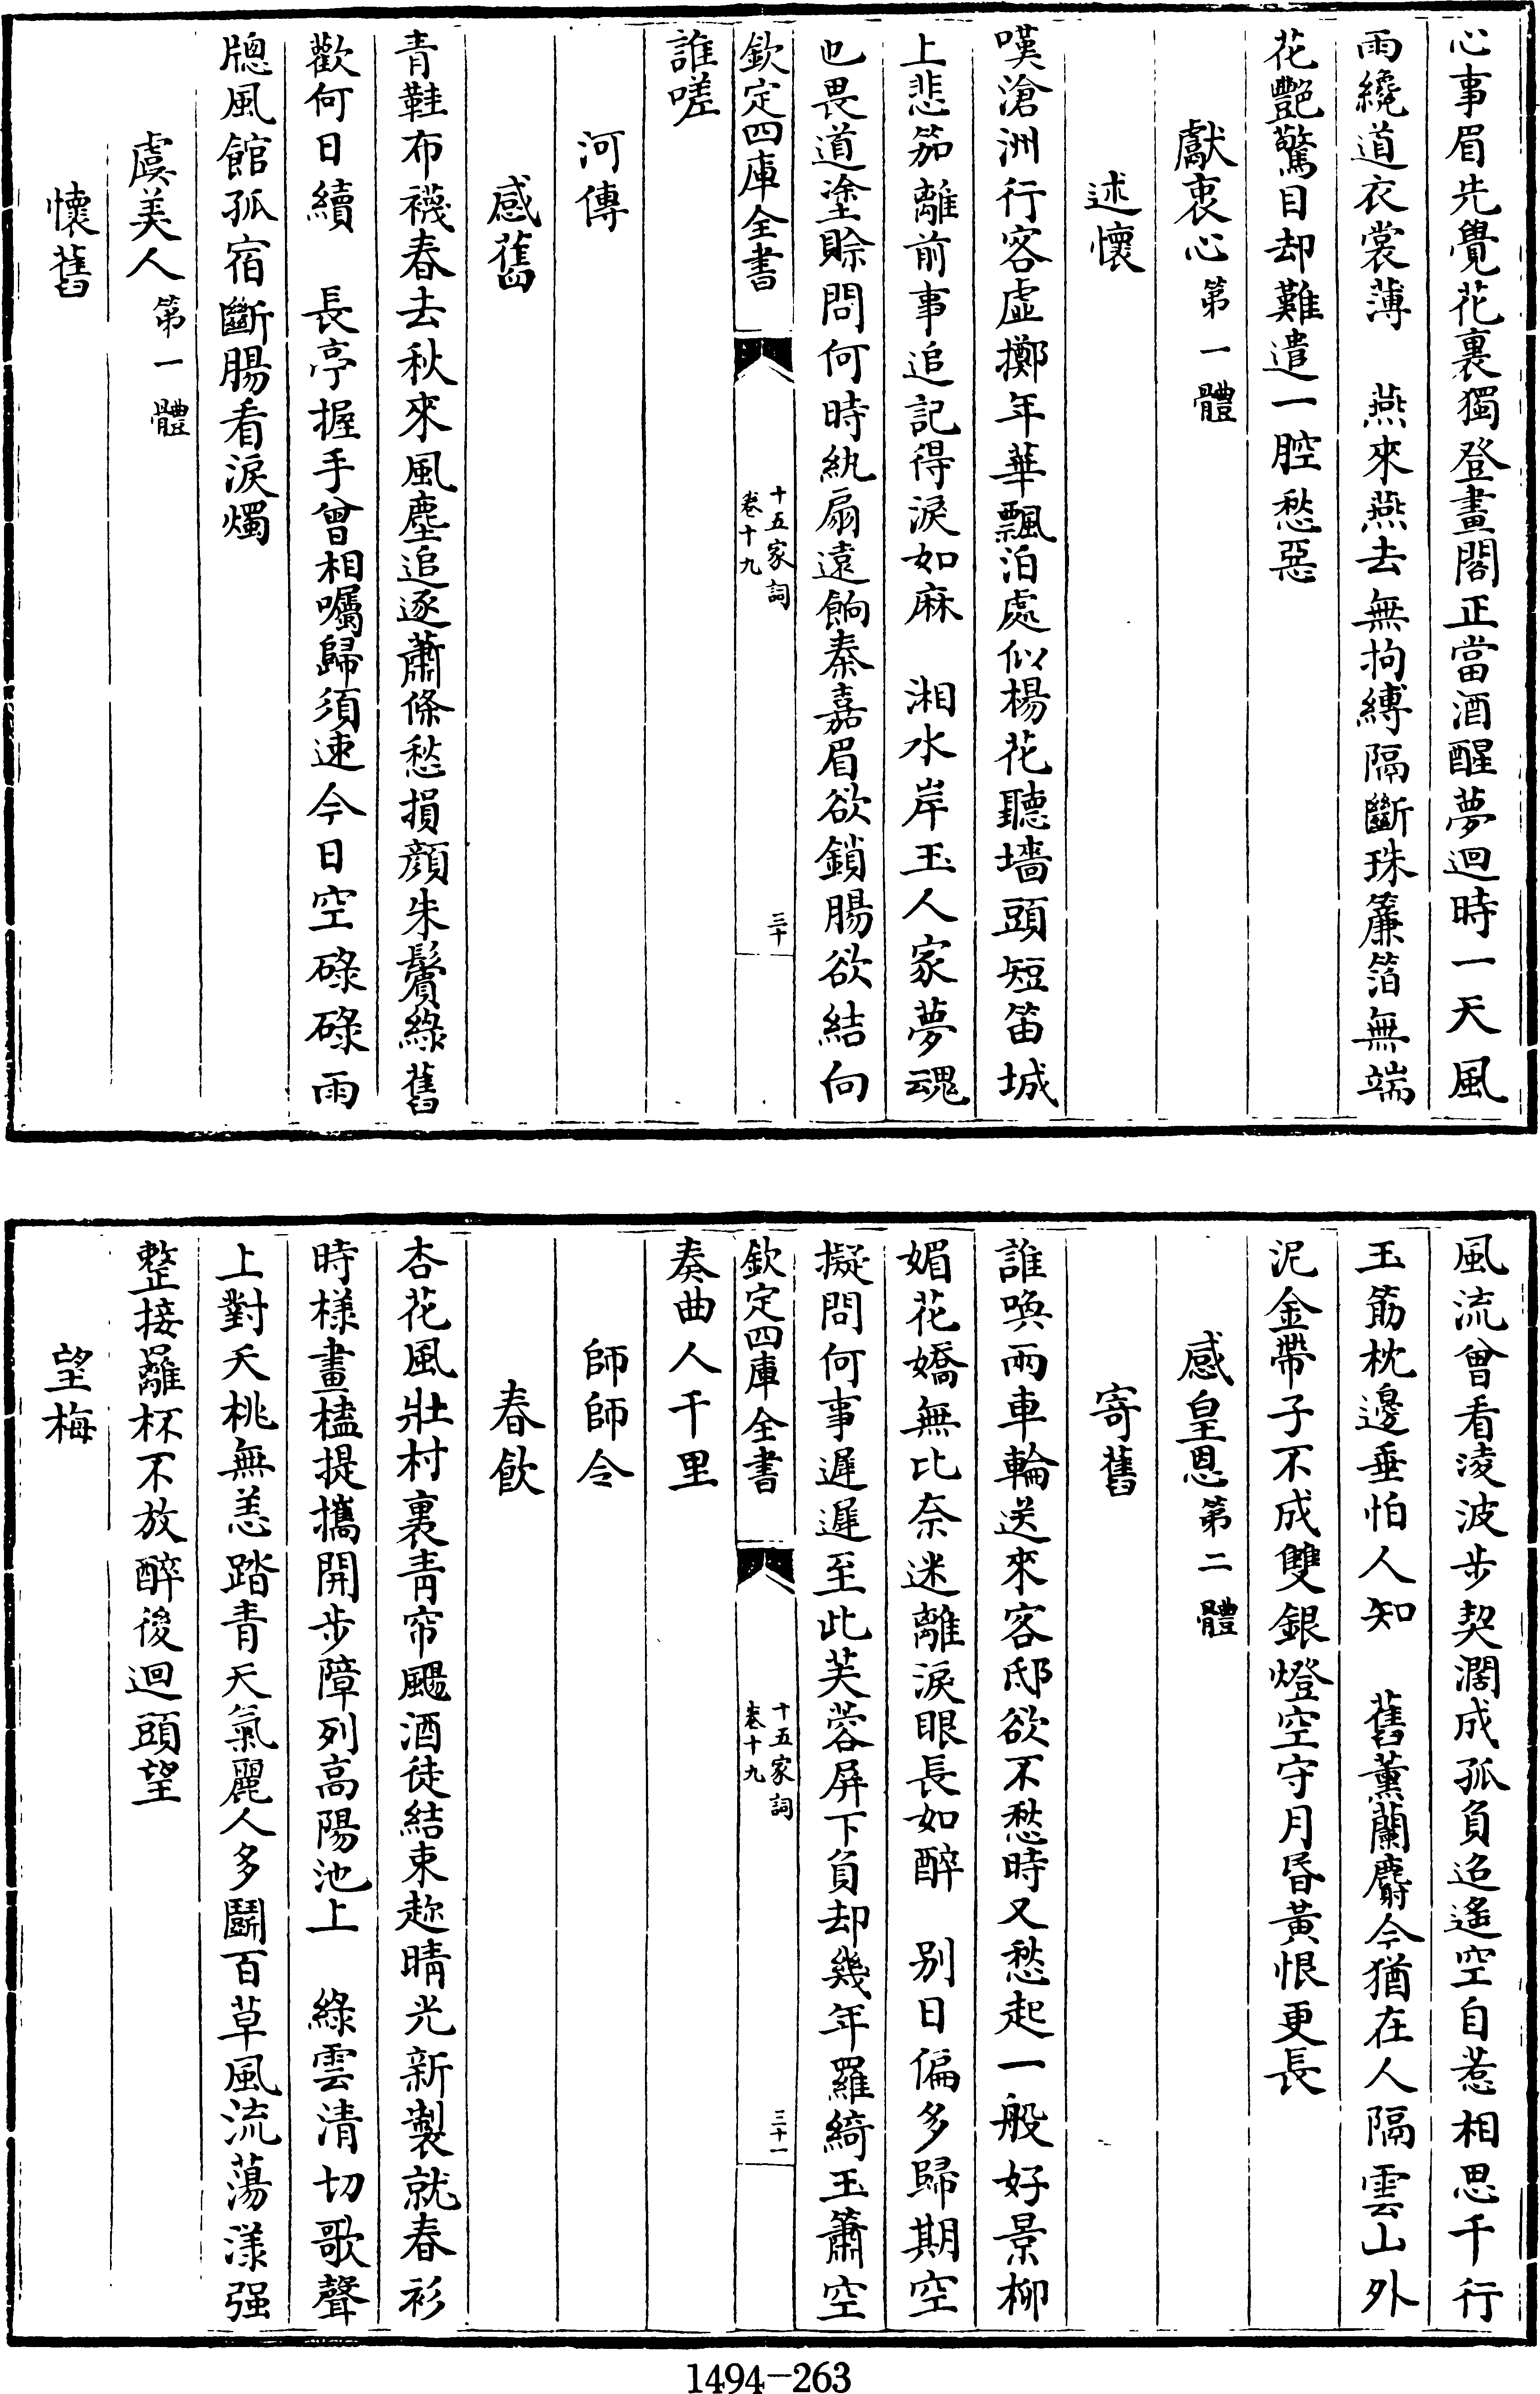 心事眉先覺花裏獨登畫閣正當酒醒夢迴時一天風
雨纔道衣裳薄　燕來燕去無拘縛隔斷珠簾箔無端
花艷驚目却難遣一腔愁惡
獻衷心第一體
述懷
嘆滄洲行客虛擲年華飄泊處似楊花聽墻頭短笛城
上悲笳離前事追記得淚如麻　湘水岸玉人家夢魂
也畏道塗賒問何時紈扇遠餉秦嘉眉欲鎖腸欲結向
欽定四庫全書
十五家詞
卷十九
三十
誰嗟
河傳
感舊
青鞋布襪春去秋來風塵追逐蕭條愁損顔朱鬢綠舊
歡何日續　長亭握手曾相囑歸須速今日空碌碌雨
牕風館孤宿斷腸看淚燭
虞美人第一體
懷舊
風流曾看淩波步契濶成孤負迢遙空自惹相思千行
玉筯枕邊垂怕人知　舊薰蘭麝今猶在人隔雲山外
泥金帶子不成雙銀燈空守月昬黃恨更長
感皇恩第二體
寄舊
誰喚兩車輪送來客邸欲不愁時又愁起一般好景柳
媚花嬌無比奈迷離淚眼長如醉　別日偏多歸期空
擬問何事遲遲至此芙蓉屏下負却幾年羅綺玉簫空
欽定四庫全書
十五家詞
卷十九
三十一
奏曲人千里
師師令
春飲
杏花風壯村裏青帘颺酒徒結束趂晴光新製就春衫
時樣畫榼提攜開步障列高陽池上　綠雲清切歌聲
上對夭桃無恙踏青天氣麗人多鬬百草風流蕩漾强
整接䍦杯不放醉後迴頭望
望梅
1494-263